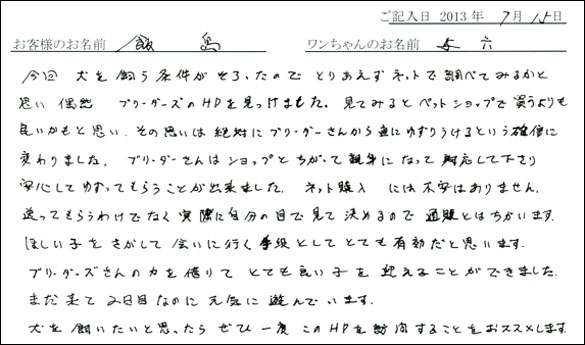 ご記入日 2013 年 7 月 15 日
お客様のお名前 飯島 ワンちゃんのお名前 与六
今回 犬を飼う条件がそろったので とりあえずネットで調べてみるかと
思い 偶然 ブリーダーズのHPを見つけました。見てみるとペットショップで買うよりも
良いかもと思い、その思いは絶対にブリーダーさんから直にゆずりうけるという確信に
変わりました。ブリーダーさんはショップとちがって親身になって対応して下さり
安心してゆずってもらうことが出来ました。ネット購入 には不安はありません。
送ってもらうわけでなく実際に自分の目で見て決めるので通販とはちがいます。
ほしい子をさがして会いに行く手段としてとても有効だと思います。
ブリーダーズさんの力を借りてとても良い子を迎えることができました。
まだ来て2日目なのに元気に遊んでいます。
犬を飼いたいと思ったらぜひ一度このHPを訪問することをおススメします